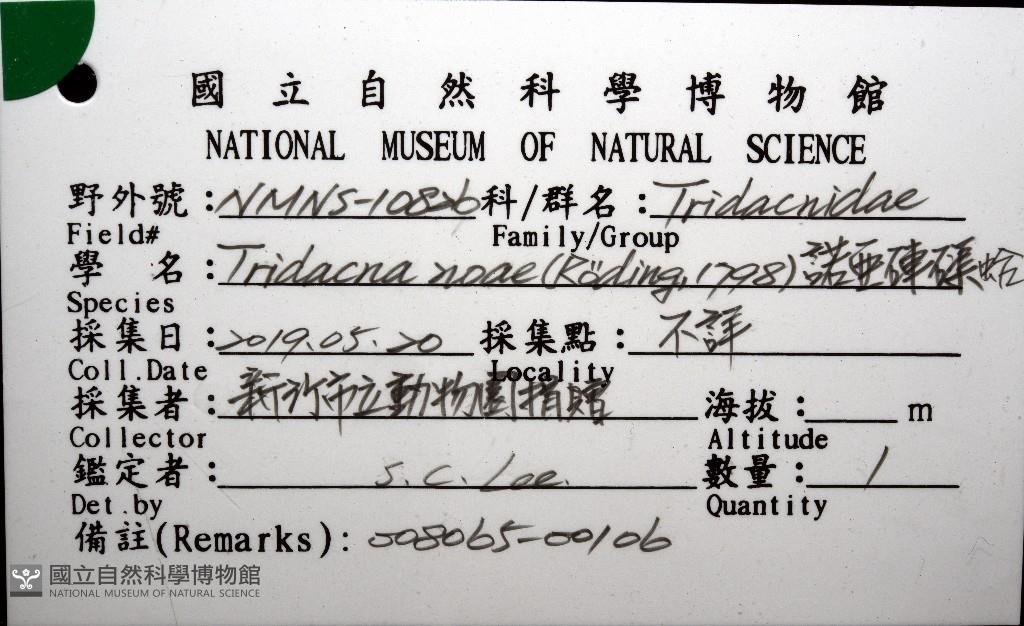 國立自然科學博物館
NATIONAL MUSEUM OF NATURAL SCIENCE
野外號:NMNS-10826 科/群名:Tridacnidae
Field# Family/Group
學 名:Tridacna noae (Röding, 1798) 諾亞硨磲蛤
Species
採集日:2019.05.20 採集點:不詳
Coll.Date Locality
採集者:新竹市立動物園捐贈 海拔: m
Collector Altitude
鑑定者:S.C. Lee. 數量:1
Det.by Quantity
備註(Remarks): 008065-00106
國立自然科學博物館
NATIONAL MUSEUM OF NATURAL SCIENCE